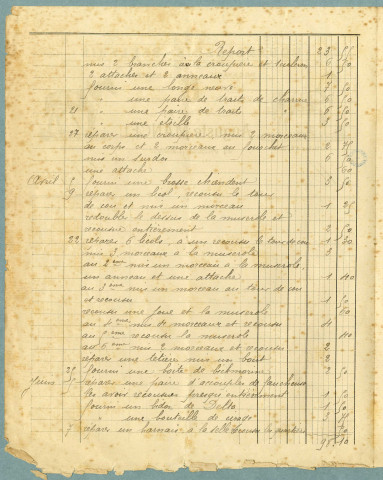 Report 23 55
mis 2 branches à la croupière et
2 attaches et 2 anneaux 1
fourni une longe 7 50
" une paire de traits de charrue 6 50
21 " une paire de traits 6 50
" une étrille 3 50
27 réparé une croupière, mis 2 morceaux
au corps et 2 morceaux au fourchet 2 75
mis un surdos 6 50
une attache 60
Avril 2 fourni une brosse chiendent 3 50
9 réparé un licol, recousu le tour
de cou et mis un morceau 1 25
redoublé le dessus de la muserole et
recousu entièrement 2 50
22 réparé 6 licols, à un recousu le tour de cou 1 50
mis 3 morceaux à la muserole 3
au 2ème mis un morceau à la muserole,
un anneau et une attache 1 40
au 3ème mis un morceau au tour de cou
et recousu 1 50
recousu une joue et la muserole 60
au 4ème mis 4 morceaux et recousu 4
au 5ème recousu la muserole 40
au 6ème mis 2 morceaux et recousu 2
réparé une têtière mis un bout 2
25 fourni une boîte de 2 50
Juin 5 réparé une paire d'accouples de faucheuse
les avoir recousues presque entièrement 1 50
fourni un bidon de Delta 1 50
" une bouteille de 3 75
7 réparé un harnais à la selle recousu les 50
95 10